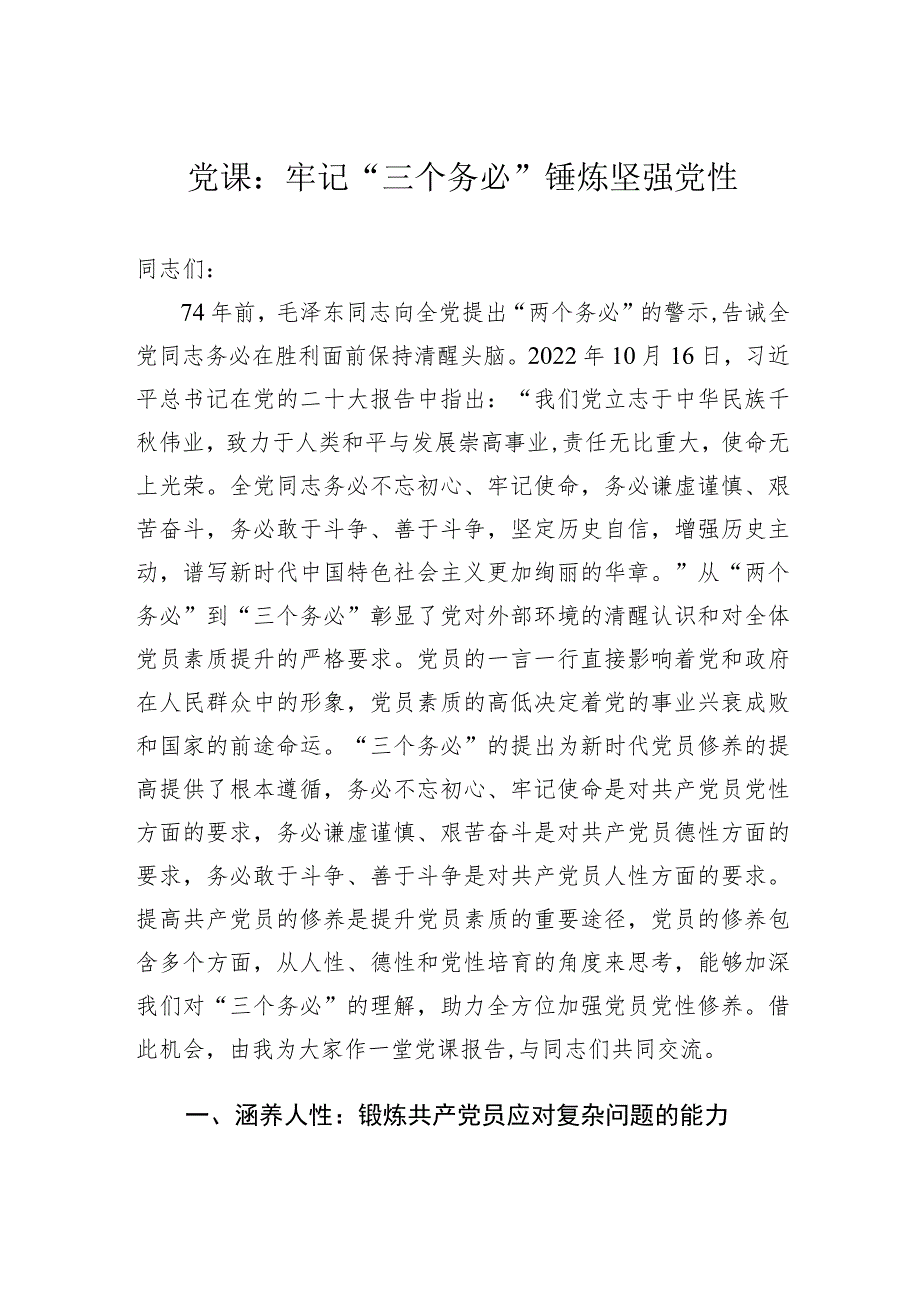 党课：牢记“三个务必”锤炼坚强党性
同志们：
74年前，毛泽东同志向全党提出“两个务必”的警示,告诫全
党同志务必在胜利面前保持清醒头脑。2022年10月16日，习近
平总书记在党的二十大报告中指出：“我们党立志于中华民族千
秋伟业，致力于人类和平与发展崇高事业,责任无比重大，使命无
上光荣。全党同志务必不忘初心、牢记使命，务必谦虚谨慎、艰
苦奋斗，务必敢于斗争、善于斗争，坚定历史自信，增强历史主
动，谱写新时代中国特色社会主义更加绚丽的华章。”从“两个
务必”到“三个务必”彰显了党对外部环境的清醒认识和对全体
党员素质提升的严格要求。党员的一言一行直接影响着党和政府
在人民群众中的形象，党员素质的高低决定着党的事业兴衰成败
和国家的前途命运。“三个务必”的提出为新时代党员修养的提
高提供了根本遵循，务必不忘初心、牢记使命是对共产党员党性
方面的要求，务必谦虚谨慎、艰苦奋斗是对共产党员德性方面的
要求，务必敢于斗争、善于斗争是对共产党员人性方面的要求。
提高共产党员的修养是提升党员素质的重要途径，党员的修养包
含多个方面，从人性、德性和党性培育的角度来思考，能够加深
我们对“三个务必”的理解，助力全方位加强党员党性修养。借
此机会，由我为大家作一堂党课报告,与同志们共同交流。
一、涵养人性：锻炼共产党员应对复杂问题的能力